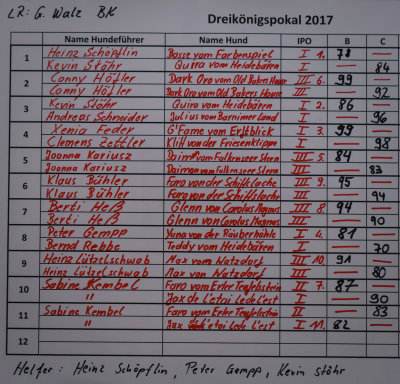 LR: G. Walz BK
Dreikönigspokal 2017
Name Hundeführer Name Hund IPO B C
1 Heinz Schöpflin Basse vom Farbenspiel I 1. 78 —
Kevin Stöhr Quira vom Heidebären I — 84
2 Conny Höfler Dark Oro vom Old Bakers House III 6. 99 —
Conny Höfler Dark Oro vom Old Bakers House III — 92
3 Kevin Stöhr Quira vom Heidebären I 2. 86 —
Andreas Schneider Julius vom Barnimer Land I — 96
4 Xenia Feder G'Fame vom Erftblick I 3. 99 —
Clemens Zettler Kliff von der Friesenklippe I — 98
5 Joanna Kariusz Daimon vom Falkenseer Stern III 5. 84 —
Joanna Kariusz Daimon vom Falkenseer Stern III — 83
6 Klaus Bühler Faro von der Schiffslache III 9. 95 —
Klaus Bühler Faro von der Schiffslache III — 94
7 Berti Heß Glenn von Carolus Magnus III 8. 94 —
Berti Heß Glenn von Carolus Magnus III — 90
8 Peter Gempp Yuna von der Räuberhöhle I 4. 81 —
Bernd Rebbe Teddy vom Heidebären I — 70
9 Heinz Lützelschwab Max vom Watzdorf III 10. 91 —
Heinz Lützelschwab Max von Watzdorf III — 80
10 Sabine Kembel Faro vom Erler Teufelsstein II 7. 87 —
" Jax de l'etoi lede l'est I — 90
11 Sabine Kembel Faro vom Erler Teufelsstein II — 83
" Jax de l'etoi lede l'est I 11. 82 —
12
Helfer: Heinz Schöpflin, Peter Gempp, Kevin Stöhr